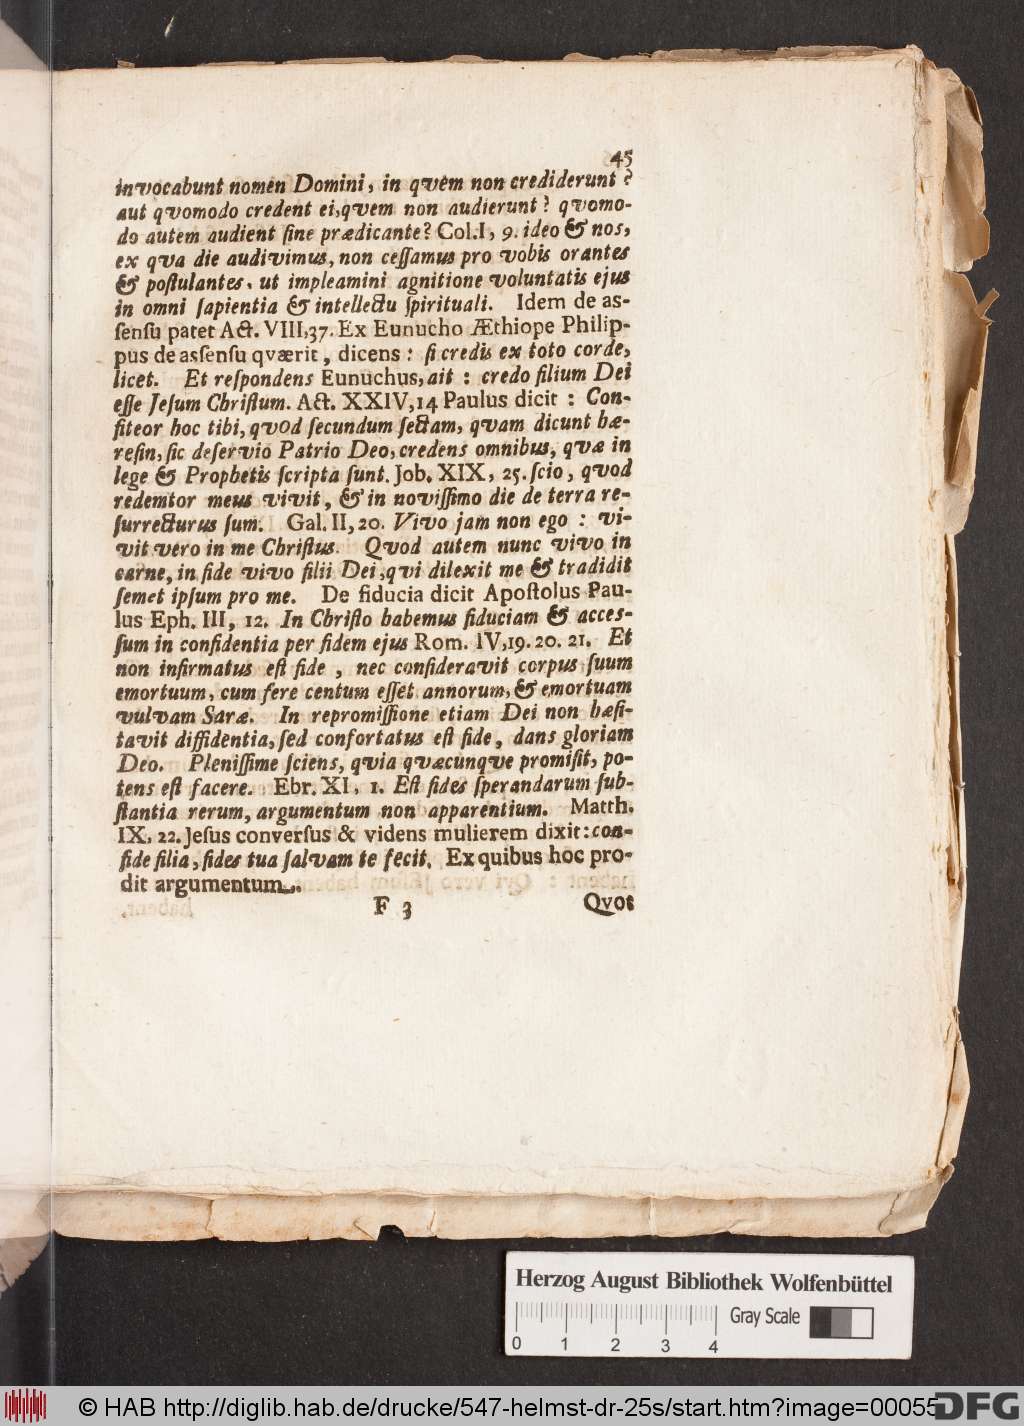 45
invocabunt nomen Domini, in qvem non crediderunt?
aut qvomodo credent ei, qvem non audierunt? qvomo-
do autem audient ſine prædicante? Col. I, 9. ideo & nos,
ex qva die audivimus, non ceſſamus pro vobis orantes
& poſtulantes, ut impleamini agnitione voluntatis ejus
in omni ſapientia & intellectu ſpirituali. Idem de aſ-
ſenſu patet Act. VIII, 37. Ex Eunucho Æthiope Philip-
pus de aſſenſu qværit, dicens: ſi credis ex toto corde,
licet. Et reſpondens Eunuchus, ait: credo filium Dei
eſſe Jeſum Chriſtum. Act. XXIV, 14 Paulus dicit: Con-
fiteor hoc tibi, qvod ſecundum ſectam, quam dicunt hæ-
reſin, ſic deſervio Patrio Deo, credens omnibus, qvæ in
lege & Prophetis ſcripta ſunt. Job. XIX, 25. ſcio, qvod
redemtor meus vivit, & in noviſſimo die de terra re-
ſurrecturus ſum. Gal. II, 20. Vivo jam non ego: vi-
vit vero in me Chriſtus. Qvod autem nunc vivo in
carne, in fide vivo filii Dei, qvi dilexit me & tradidit
ſemet ipſum pro me. De fiducia dicit Apoſtolus Pau-
lus Eph. III, 12. In Chriſto habemus fiduciam & acceſ-
ſum in confidentia per fidem ejus Rom. IV, 19. 20. 21. Et
non infirmatus eſt fide, nec conſideravit corpus ſuum
emortuum, cum fere centum eſſet annorum, & emortuam
vulvam Saræ. In repromiſſione etiam Dei non hæſi-
tavit diffidentia, ſed confortatus eſt fide, dans gloriam
Deo. Pleniſſime ſciens, qvia qvæcunqve promiſit, po-
tens eſt facere. Ebr. XI, 1. Eſt fides ſperandarum ſub-
ſtantia rerum, argumentum non apparentium. Matth.
IX, 22. Jeſus converſus & videns mulierem dixit: con-
fide filia, fides tua ſalvam te fecit. Ex quibus hoc pro-
dit argumentum.
F 3 Qvot
Herzog August Bibliothek Wolfenbüttel
Gray Scale
0 1 2 3 4
© HAB http://diglib.hab.de/drucke/547-helmst-dr-25s/start.htm?image=00055
DFG